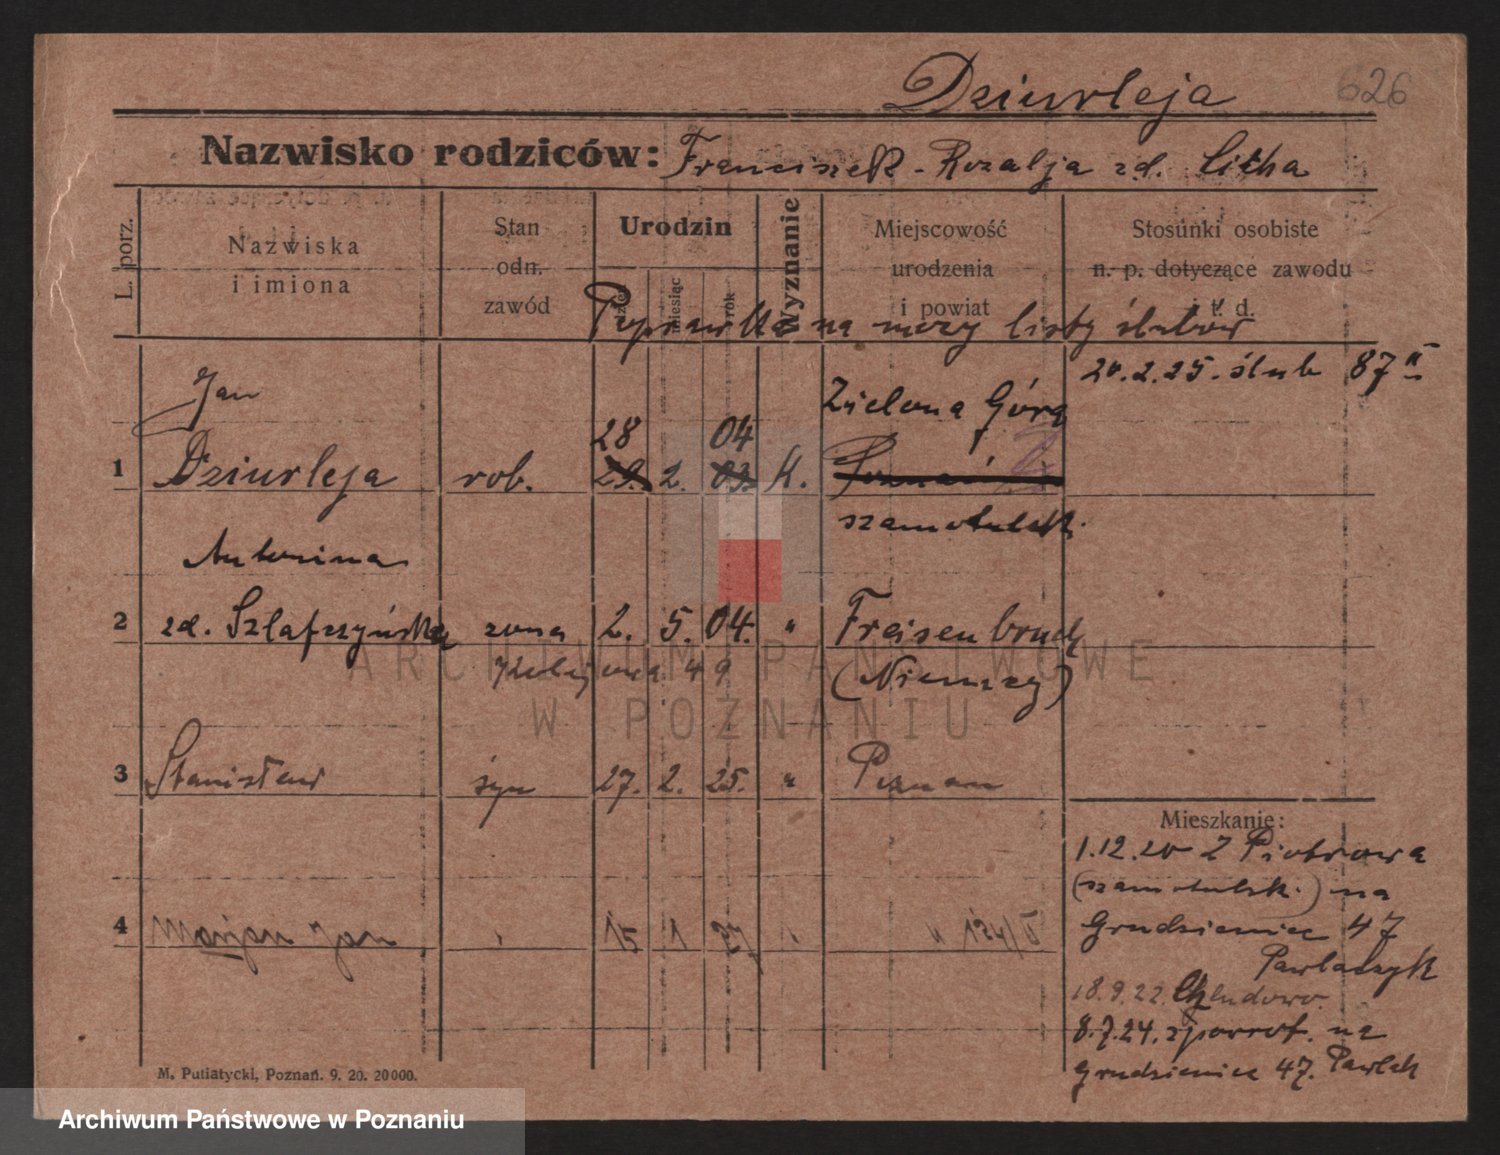 Dziurleja 626
Nazwisko rodziców: Franciszek - Rozalja zd. Licha
L. porz.
Nazwiska
i imiona
Stan
odn.
zawód
Urodzin
dzień
miesiąc
rok
Wyznanie
Miejscowość
urodzenia
i powiat
Stosunki osobiste
n. p. dotyczące zawodu
i t. d.
Poprawka na mocy listy ślubów
20.2.25. ślub 87 II
Jan Zielona Góra
28 04
1 Dziurleja rob. 29. 2. 03. K. Poznań
szamotulsk.
Antonina
2 zd. Szlafszyńska żona 2. 5. 04. " Freisenbruch
49 (Niemcy)
3 Stanisław syn 27. 2. 25. " Poznan
Mieszkanie:
1.12.20 Z Piotrowa
(szamotulsk.) na
4 Marjan Jan 15 1 Grudzieniec 47
Pawlaczyk
18.9.22. Chludowo.
8.7.24. zpowrot. na
Grudzieniec 47. Pawlak
M. Putiatycki, Poznań. 9. 20. 20000.
ARCHIWUM PAŃSTWOWE
W POZNANIU
Archiwum Państwowe w Poznaniu